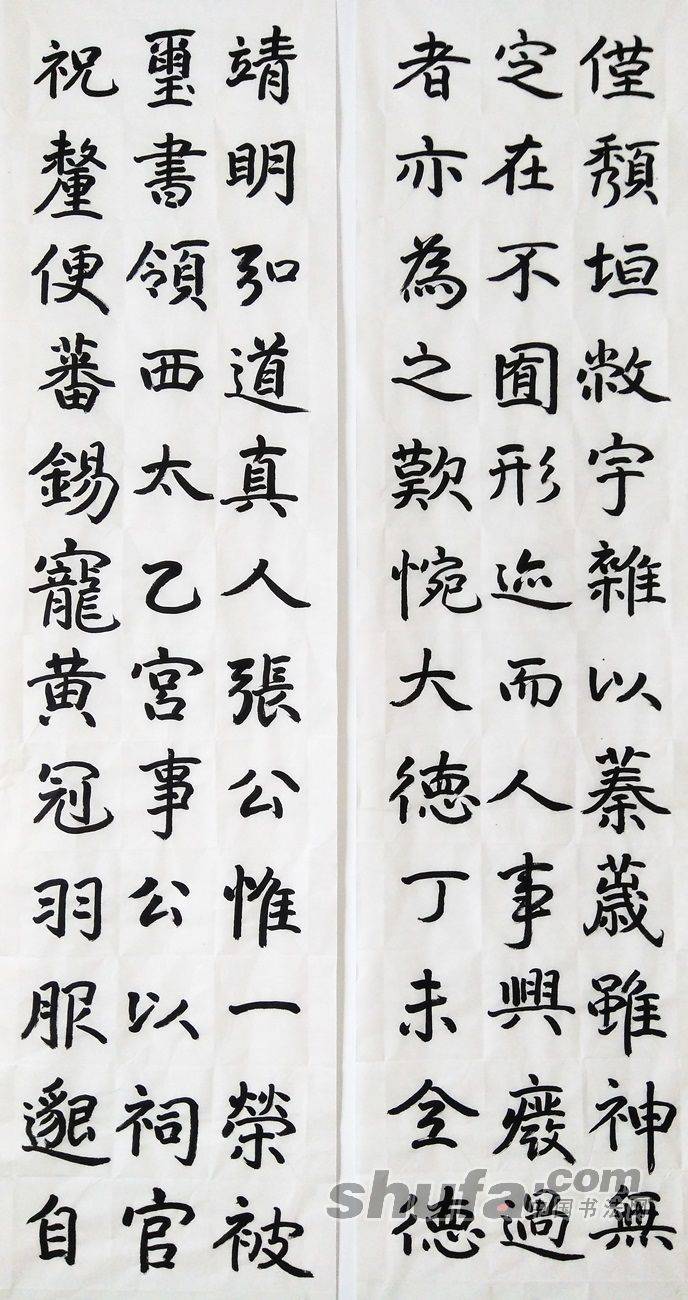 僅頽垣敝宇雜以蓁薉雖神無
定在不囿形迹而人事興癈過
者亦為之歎惋大德丁未全德
靖明弘道真人張公惟一榮被
璽書領西太乙宮事公以祠官
祝釐便蕃錫寵黃冠羽服邈自
shufa.com
中国书法网